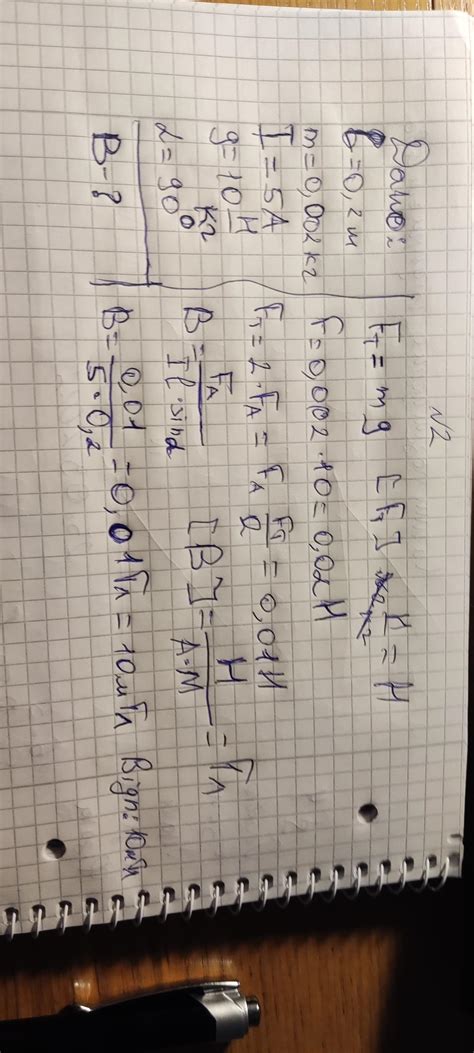 №2
Дано:
l=0,2м
m=0,002кг
I=5A
g=10 Н/кг
α=90°
B-?
Fт=mg [Fт] = Н
F=0,002·10=0,02Н
Fт=2·FA = FA Fт/2 =0,01Н
B=FA/Il·sinα [B]=Н/А·м=Тл
B=0,01/5·0,2=0,01Тл=10мТл Відп: 10мТл